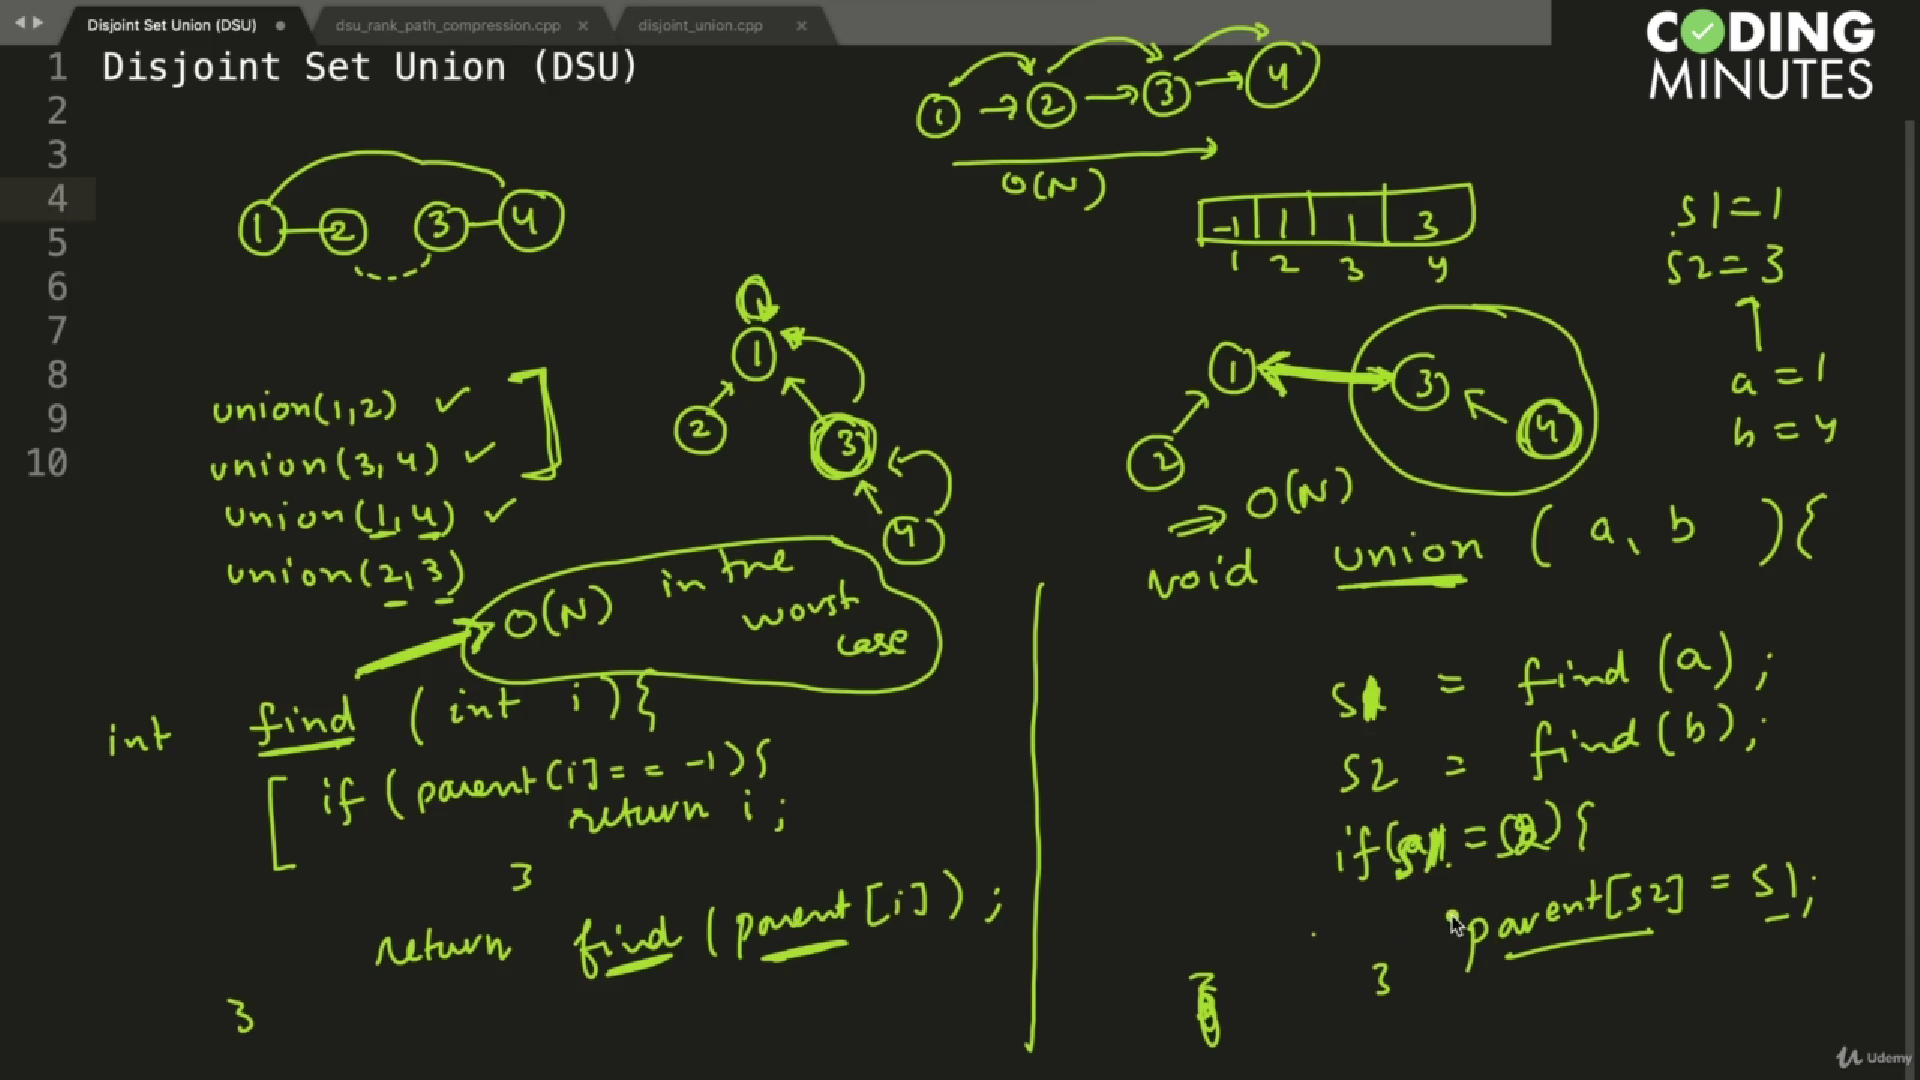 Disjoint Set Union (DSU)
dsu_rank_path_compression.cpp
disjoint_union.cpp
CODING
MINUTES
1 Disjoint Set Union (DSU)
2
3
4
5
6
7
8
9
10
1 → 2 → 3 → 4
O(N)
1 2 3 4
-1 1 1 3
1 2 3 4
s1=1
s2=3
a = 1
b = 4
1
2 3
4
1 3
2 4
union(1,2) ✓
union(3,4) ✓
union(1,4) ✓
union(2,3)
⇒ O(N)
O(N) in the
worst
case
int find (int i){
if (parent[i] == -1){
return i;
}
return find (parent[i]);
}
void union (a, b){
s1 = find(a);
s2 = find(b);
parent[s2] = s1;
}
Udemy